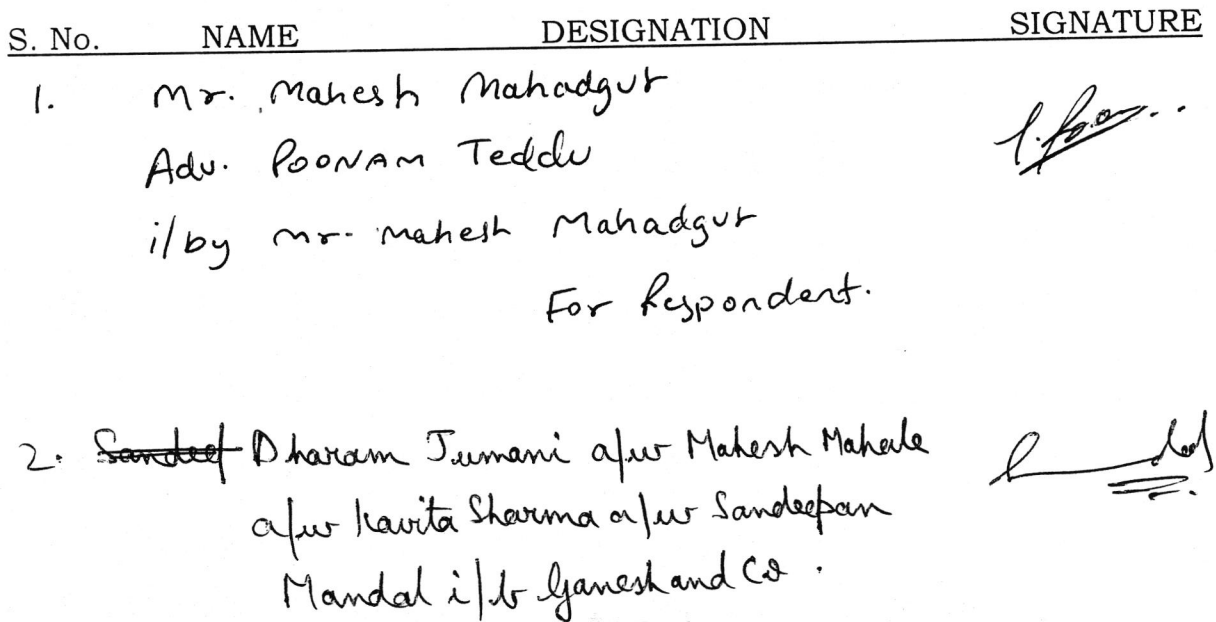 S. No. NAME DESIGNATION SIGNATURE
1. Mr. Mahesh Mahadgut
Adv. POONAM Teddu
i/by Mr. Mahesh Mahadgut
For Respondent.
2. Sandeep Dharam Jumani a/w Mahesh Mahale
a/w Kavita Sharma a/w Sandeepan
Mandal i/b Ganesh and Co.